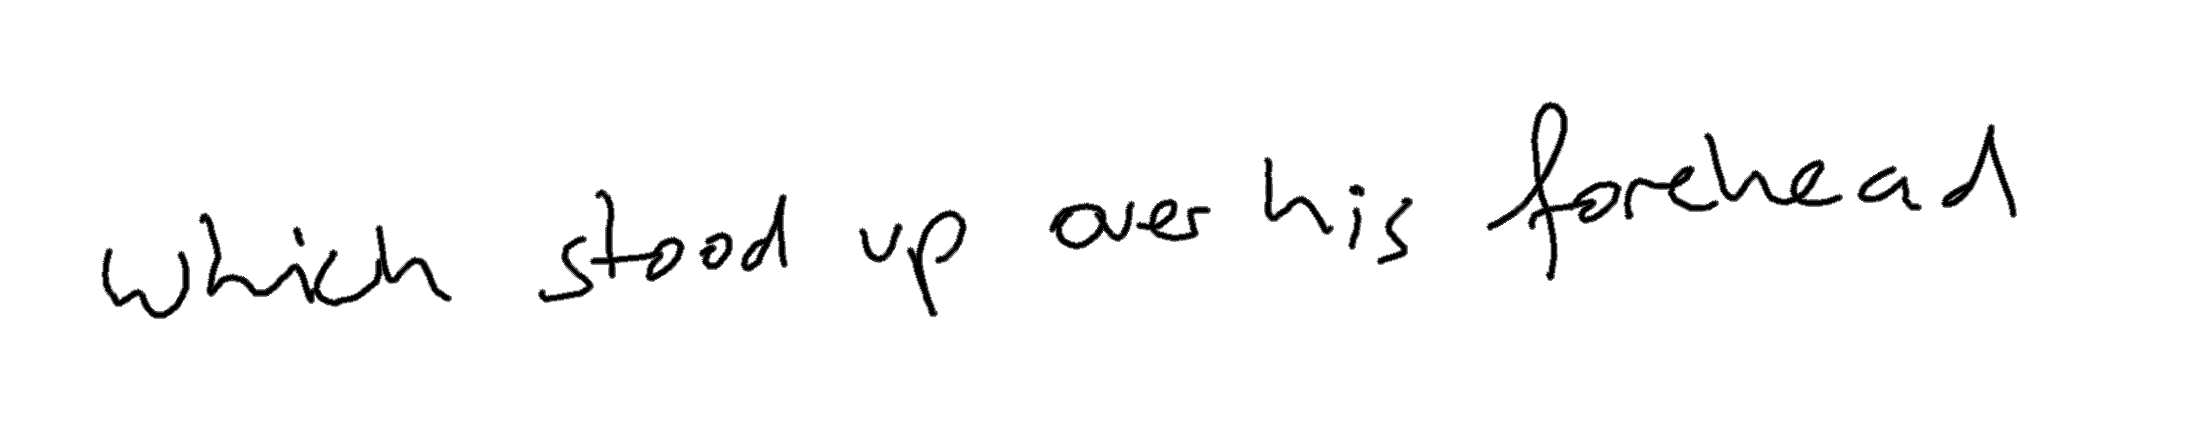 which stood up over his forehead